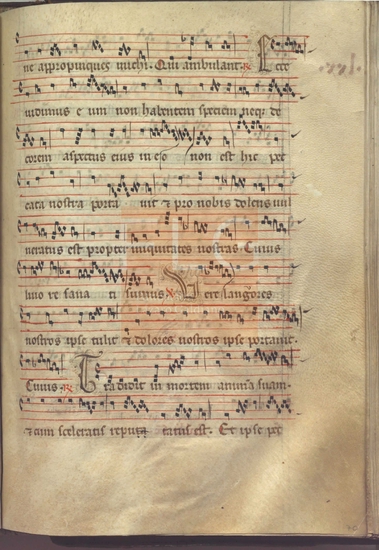 ne appropinques michi. Qui ambulant. ℟ Ecce
uidimus eum non habentem speciem neqz de
corem aspectus eius in eo non est hic pec
cata nostra porta uit & pro nobis dolens uul
neratus est propter iniquitates nostras. Cuius
liuo re sana ti sumus ℣ Uere langores
nostros ipse tulit & dolores nostros ipse portauit.
Cuius. ℟ Tradidit in mortem animā suam
& cum sceleratis reputa tus est. Et ipse pec